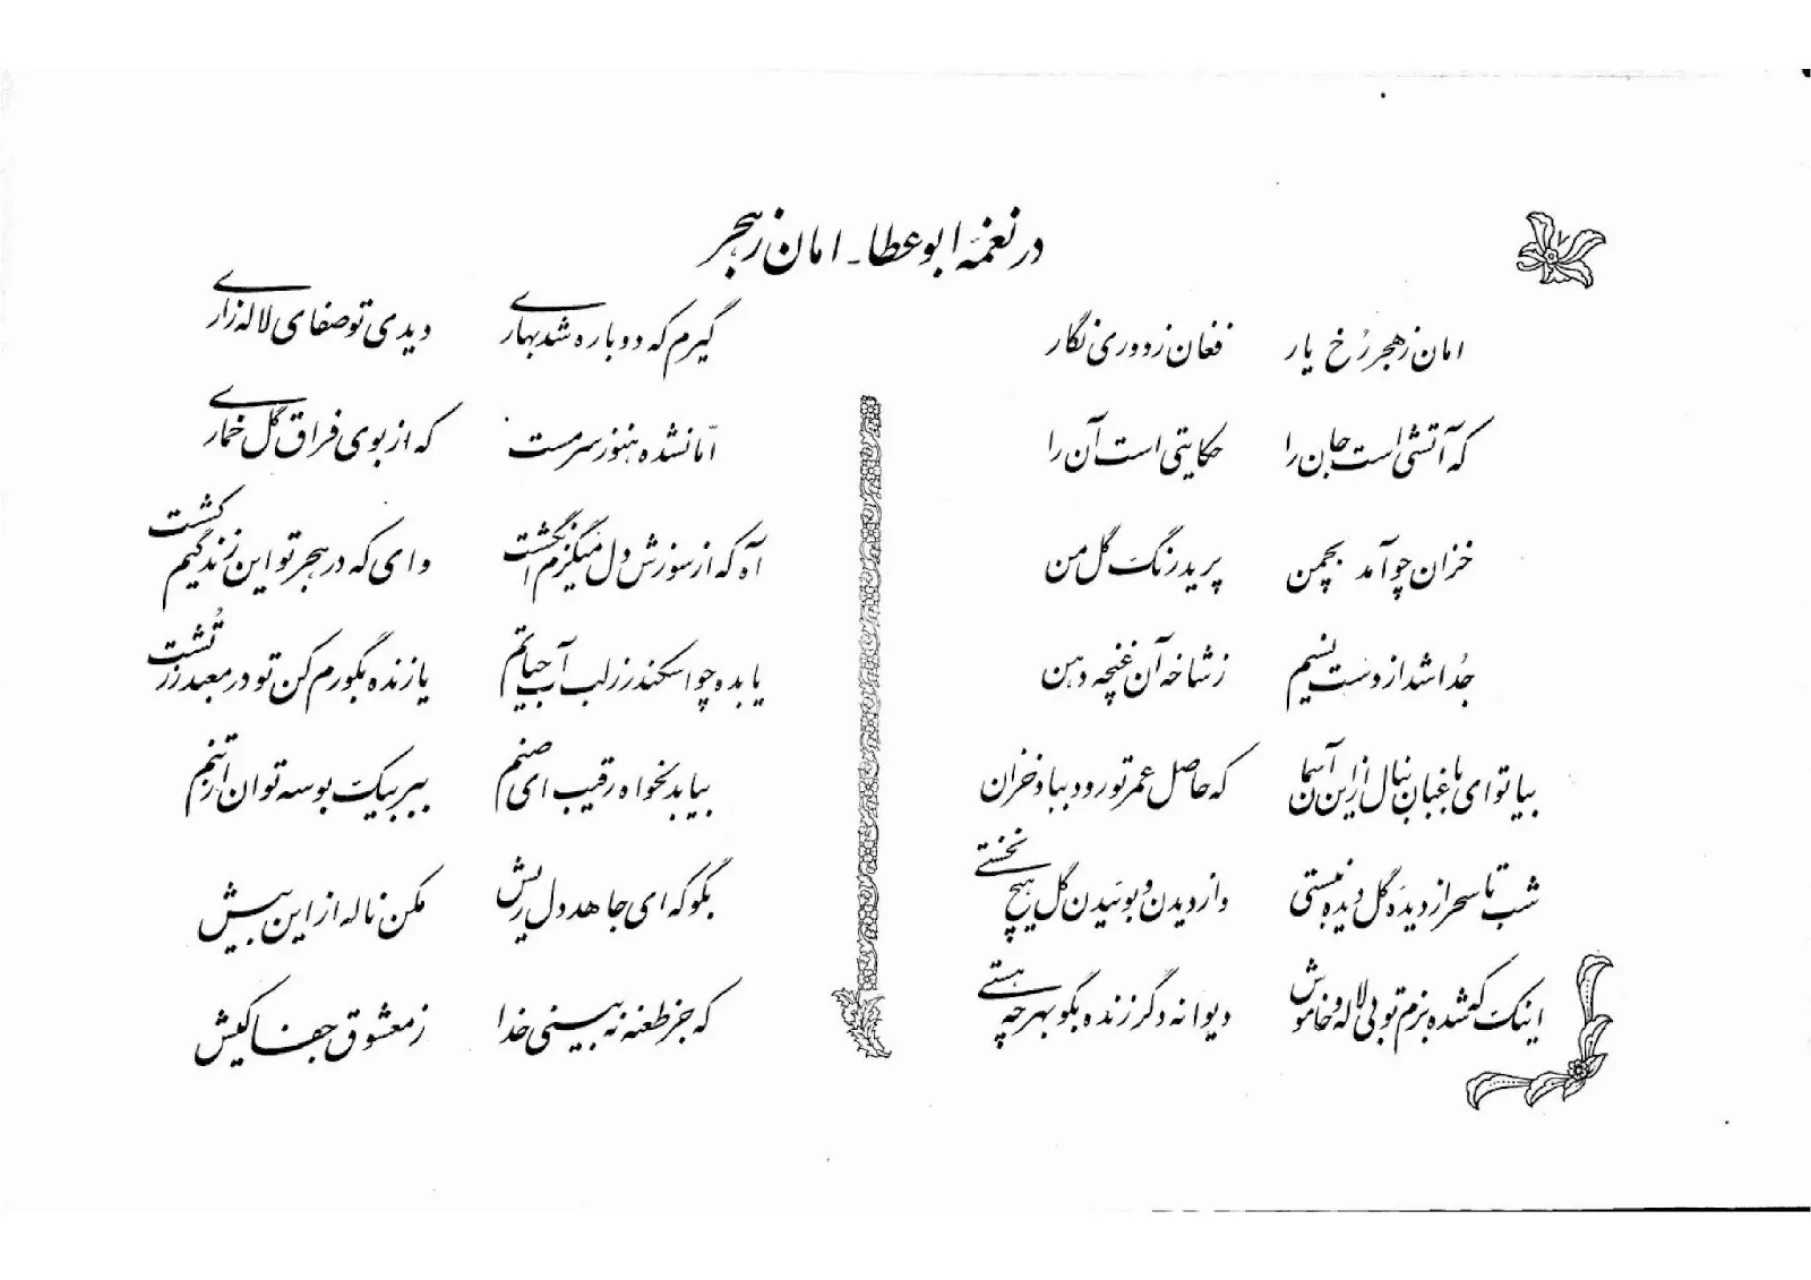 در نغمهٔ ابوعطا ـ امان ز هجر
امان ز هجر رُخ یار فغان ز دوری نگار
که آتشی است جان را حکایتی است آن را
خزان چو آمد بچمن پرید رنگ گل من
جُدا شد از دست نسیم ز شاخه آن غنچه دهن
بیا تو ای باغبان بنال از این آسمان که حاصل عمر تو رود بباد خزان
شب تا سحر از دیده گل دیده نبستی واز دیدن و بوئیدن گل هیچ نخستی
اینک که شده بزم تو بی لاله و خاموش دیوانه دگر زنده بگو بهر چه هستی
گیرم که دوباره شد بهاری دیدی تو صفای لاله زاری
امّا نشده هنوز سرمست که از بوی فراق گل خماری
آه که از سوزش دل میگزم انگشت وای که در هجر تو این زندگیم کشت
یا بده چو اسکندر ز لب آب حیاتم یا زنده بگورم کن تو در معبد زرتُشت
بیا بدلخواه رقیب ای صنم ببر بیک بوسه توان از تنم
بگو که ای جاهد دل ریش مکن ناله از این بیش
که جز طعنه نه بینی خدا ز معشوق جفا کیش